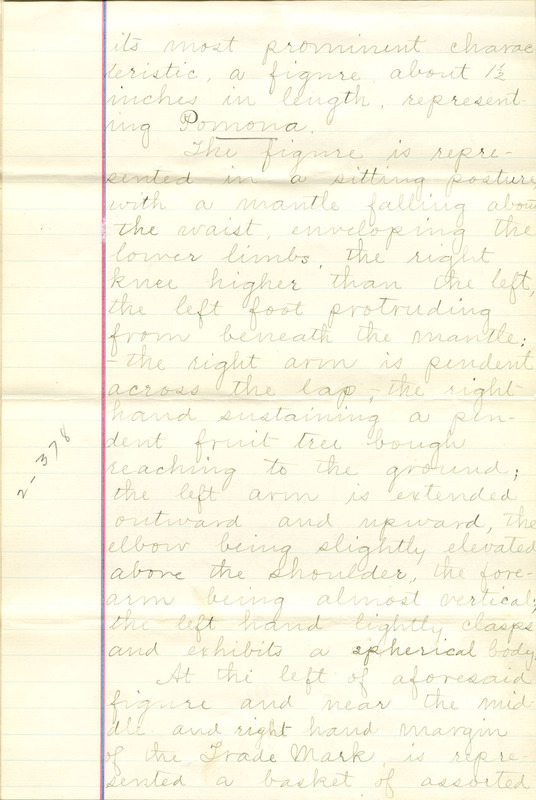 its most prominent charac
teristic, a figure about 1½
inches in length, represent-
ing Pomona.
The figure is repre-
sented in a sitting posture,
with a mantle falling about
the waist, enveloping the
lower limbs, the right
knee higher than the left,
the left foot protruding
from beneath the mantle;
- the right arm is pendent
across the lap, - the right
hand sustaining a pen-
dent fruit tree bough
reaching to the ground;
the left arm is extended
outward and upward, the
elbow being slightly elevated
above the shoulder, the fore-
arm being almost vertical;
the left hand lightly clasps
and exhibits a spherical body.
At the left of aforesaid
figure and near the mid-
dle and right hand margin
of the Trade Mark, is repre-
sented a basket of assorted
2-378